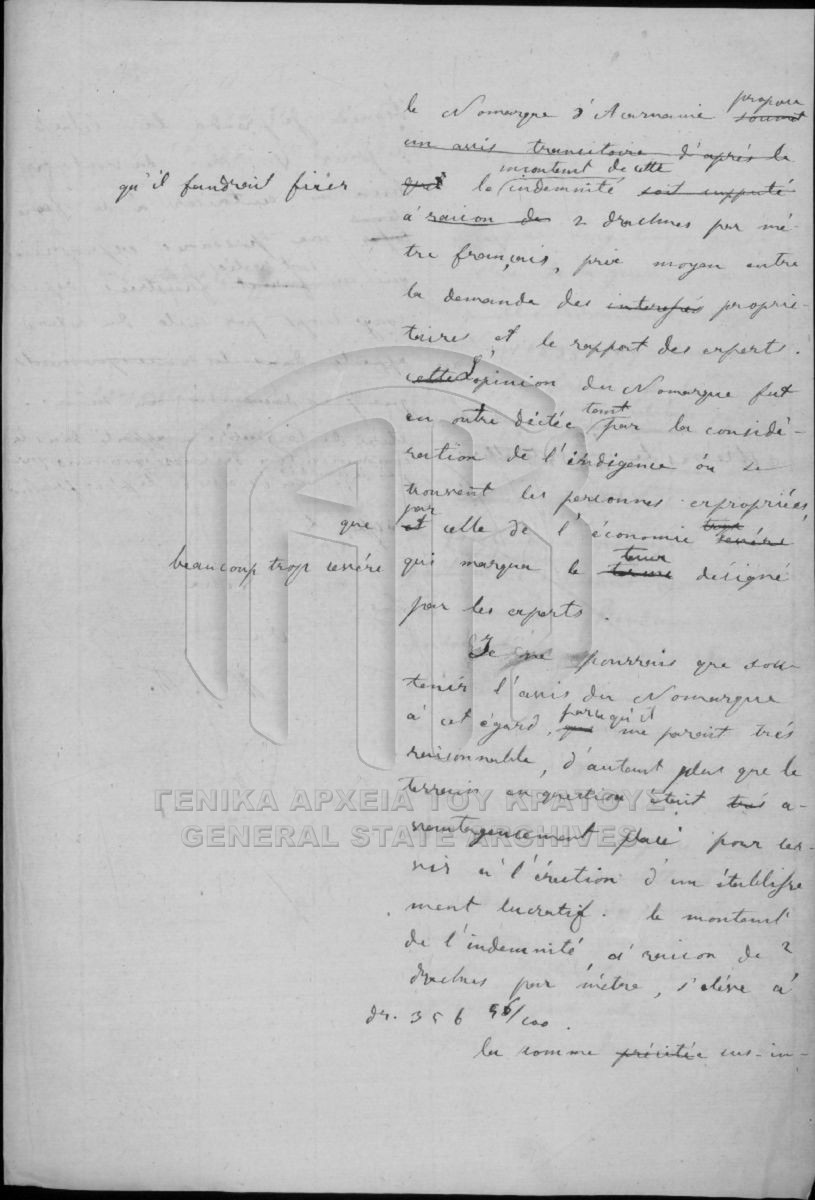 le Nomarque d'Acarnanie propose soumit
un avis transitoire d'après le
qu'il faudrait fixer
que le montant de cette indemnité soit supputé
à raison de 2 drachmes par mé-
tre français, prix moyen entre
la demande des interessés proprié-
taires et le rapport des experts.
cette L'opinion du Nomarque fut
en outre dictée tant par la considé-
ration de l'indigence où se
trouvent les personnes expropriées,
que par et celle de l'économie trop serrée
beaucoup trop serrée
qui marqua le taux désigné
par les experts.
Je ne pourrais que sou-
tenir l'avis du Nomarque
à cet égard, parcequ'il que me parait trés
raisonnable, d'autant plus que le
terrain en question était trés a-
vantageusement placé pour ser-
vir à l'érection d'un établisse
ment lucratif. le montant
de l'indemnité, à raison de 2
drachmes par mètre, s'élève à
dr. 356 56/100.
la somme précitée sus-in-
ΓΕΝΙΚΑ ΑΡΧΕΙΑ ΤΟΥ ΚΡΑΤΟΥΣ
GENERAL STATE ARCHIVES